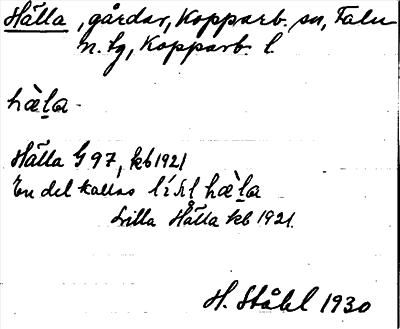 Hälla, gårdar, Kopparb. sn, Falu
n. tg, Kopparb. l.
hὲ̀la
Hälla G 97, kb 1921
En del kallas hὲ̀la
Lilla Hälla kb 1921.
H. Ståhl 1930